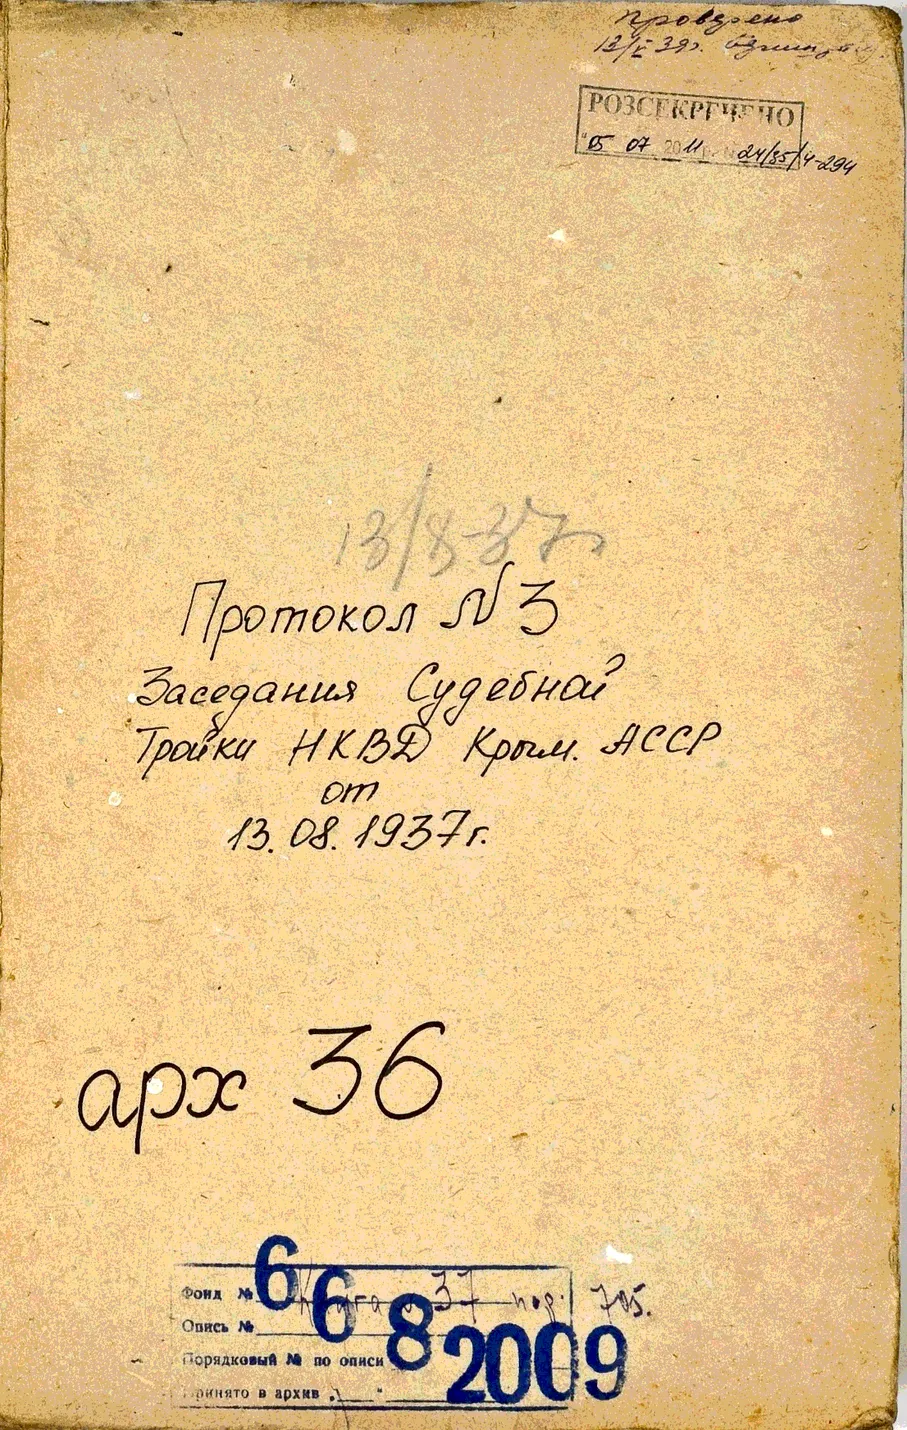 Проверено
13/V 39г.
РОЗСЕКРЕЧЕНО
"05 07 2011 р. 24/85/4-294
13/8-37
Протокол N 3
Заседания Судебной
Тройки НКВД Крым. АССР
от
13.08.1937г.
арх 36
Фонд № 6 Книга 37 пор. 705.
Опись № 6
Порядковый № по описи 8
Принято в архив „ " 2009